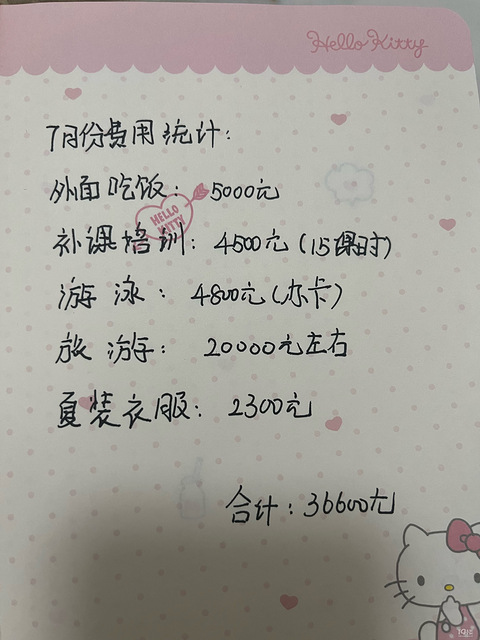 Hello Kitty
7月份费用统计:
外面吃饭: 5000元
HELLO
KITTY
补课培训: 4500元(15课时)
游泳: 4800元(办卡)
旅游: 20000元左右
夏装衣服: 2300元
合计: 36600元